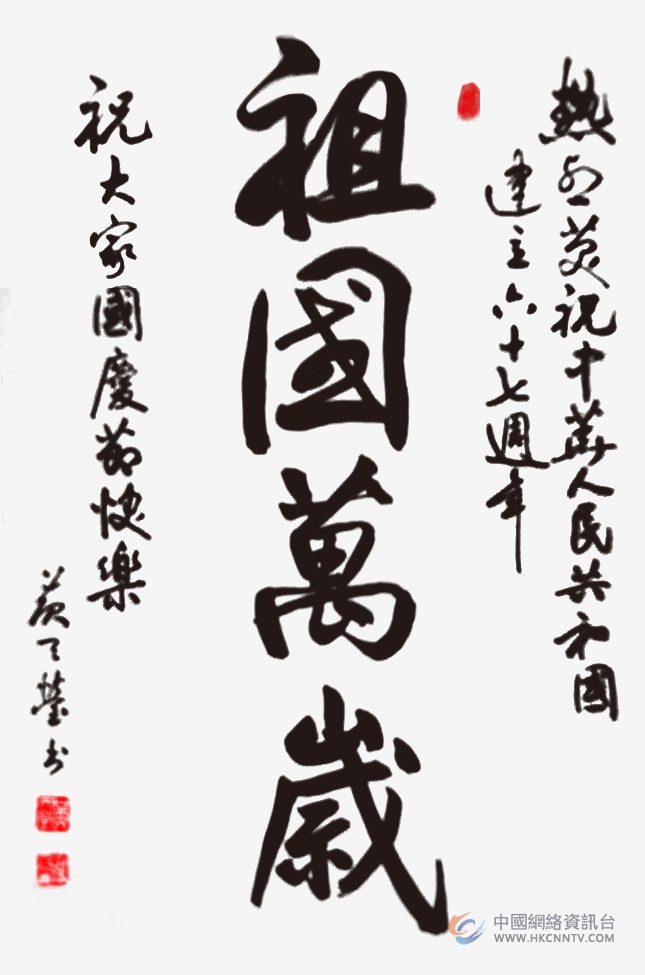 熱烈慶祝中華人民共和國
建立六十七週年
祖國萬歲
祝大家國慶節快樂
中國網絡資訊台
WWW.HKCNNTV.COM